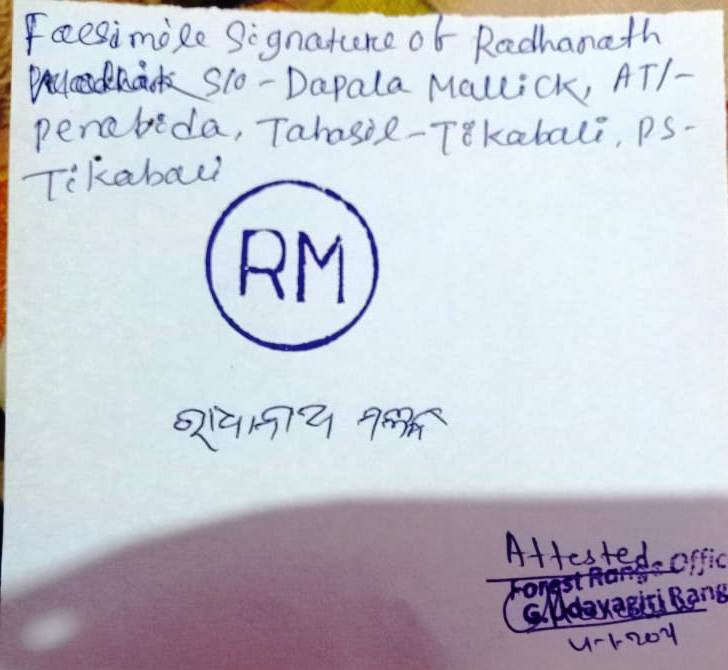 Facsimile Signature of Radhanath
S/O - Dapala Mallick, AT/-
Penabida, Tahasil - Tikabali, PS-
Tikabali
RM
ରାଧାନାଥ ମଲ୍ଲିକ
Attested
Forest Range Offic
G. Udayagiri Rang